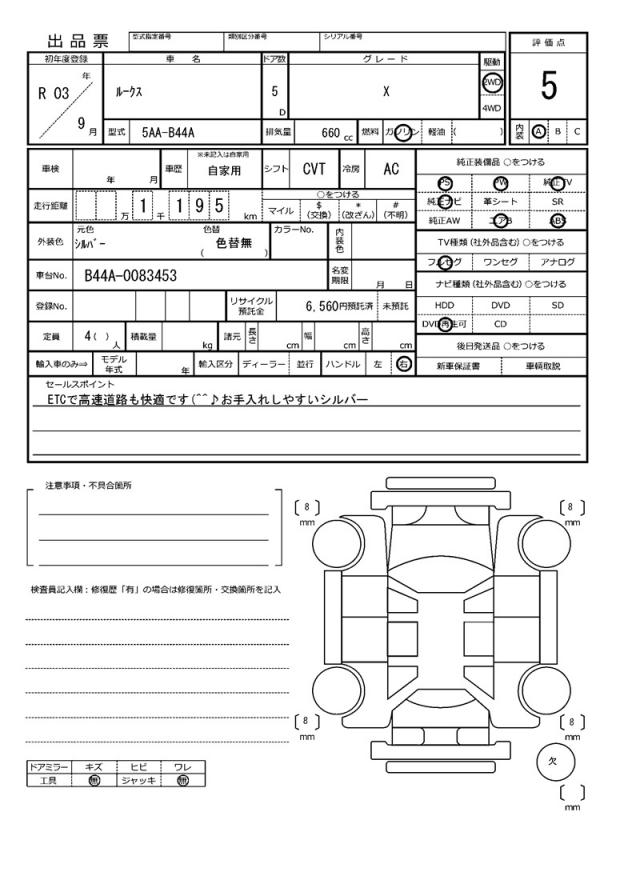 出品票 型式指定番号 類別区分番号 シリアル番号
評価点
5
内装 A B C
初年度登録 車名 ドア数 グレード 駆動
R 03 年 9 月 ルークス 5 D X 2WD 4WD
型式 5AA-B44A 排気量 660 cc 燃料 ガソリン 軽油 ( )
車検 年 月 車歴 ※未記入は自家用 自家用 シフト CVT 冷房 AC
走行距離 万 1 千 1 9 5 km
○をつける
マイル $(交換) *(改ざん) #(不明)
外装色 元色 シルバー 色替 ( 色替無 ) カラーNo. 内装色
車台No. B44A-0083453 名変期限 月 日
登録No. リサイクル預託金 6,560円預託済 未預託
定員 4( )人 積載量 kg 諸元 長さ cm 幅 cm 高さ cm
輸入車のみ⇒ モデル年式 年 輸入区分 ディーラー 並行 ハンドル 左 右
純正装備品 ○をつける
PS PW 純正TV
純正ナビ 革シート SR
純正AW エアB ABS
TV種類 (社外品含む) ○をつける
フルセグ ワンセグ アナログ
ナビ種類 (社外品含む) ○をつける
HDD DVD SD
DVD再生可 CD
後日発送品 ○をつける
新車保証書 車輌取説
セールスポイント
ETCで高速道路も快適です(^^♪お手入れしやすいシルバー
注意事項・不具合箇所
検査員記入欄:修復歴「有」の場合は修復箇所・交換箇所を記入
[ 8 ] mm
[ 8 ] mm
[ 8 ] mm
[ 8 ] mm
欠
[ ] mm
ドアミラー キズ ヒビ ワレ
工具 無 ジャッキ 無